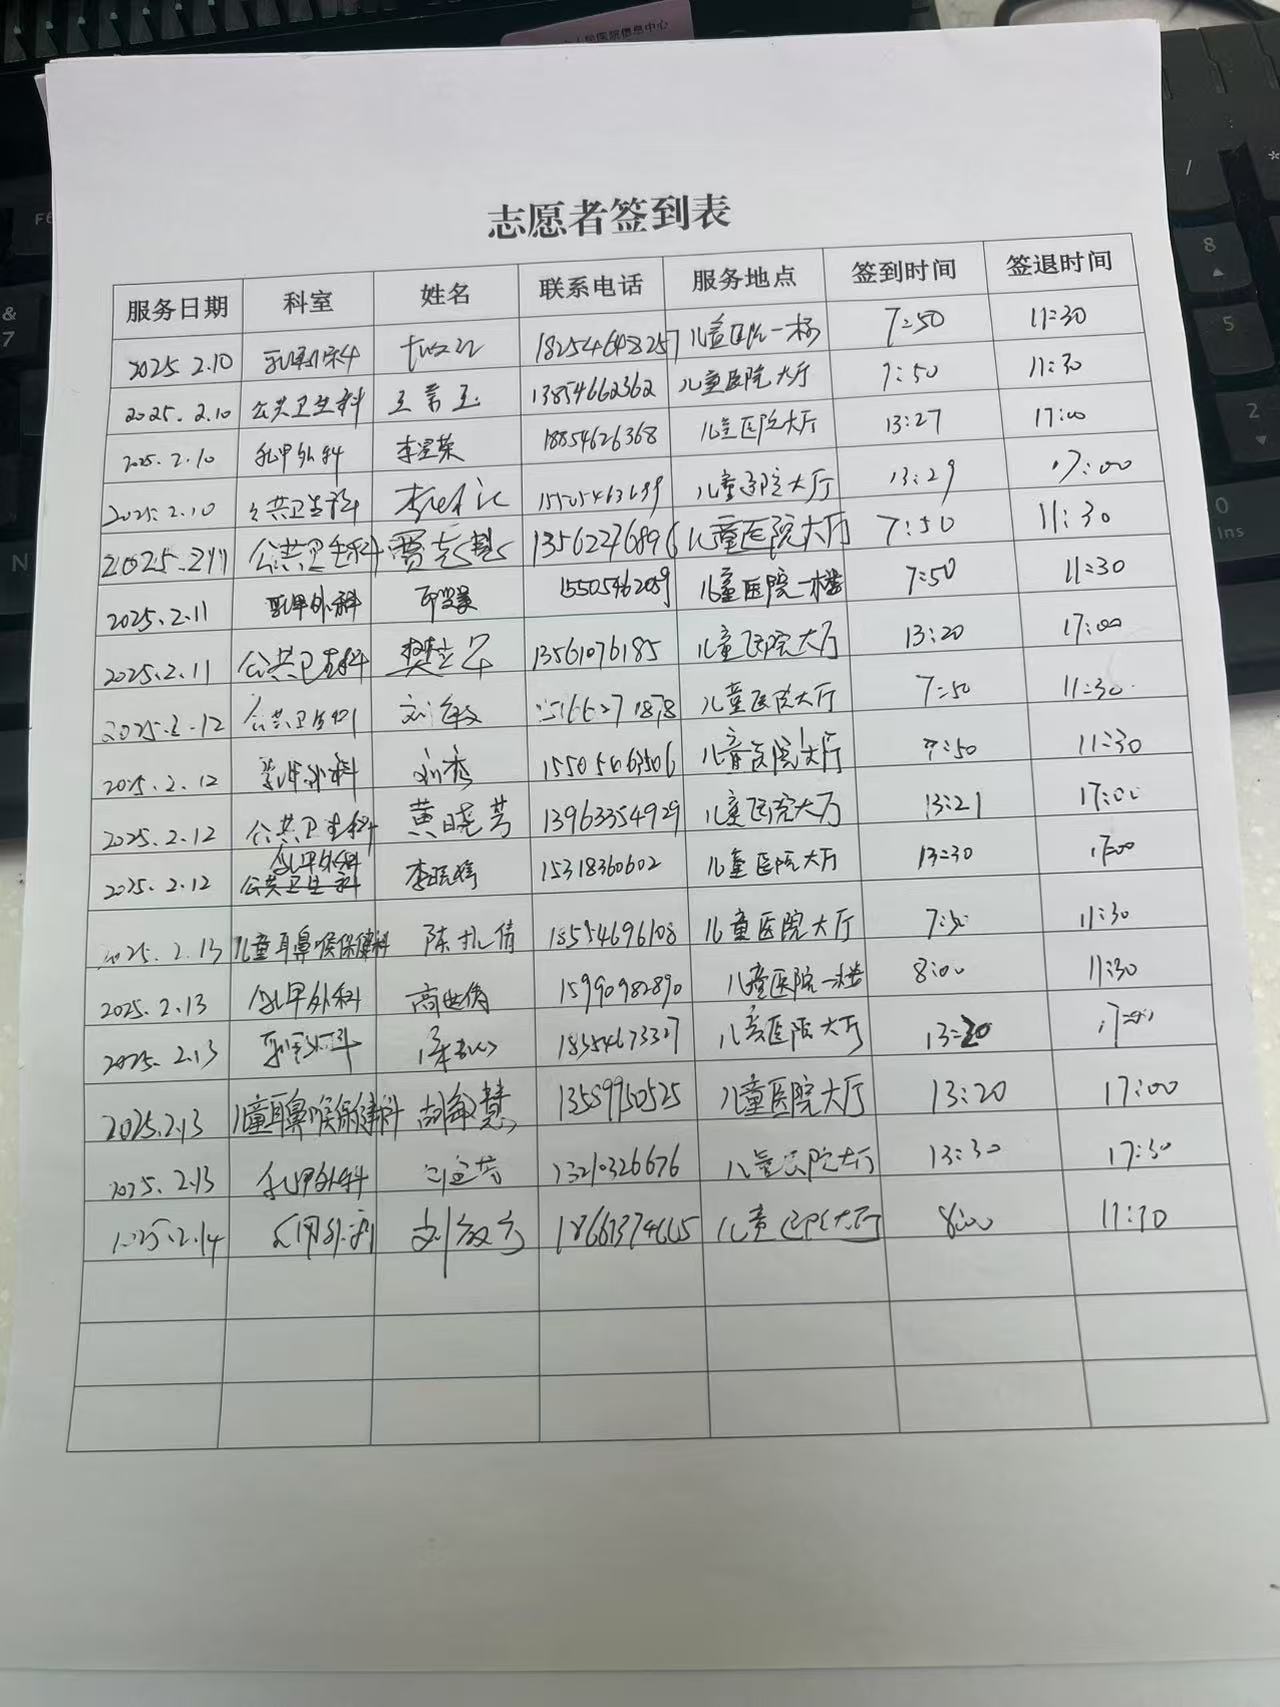 人民医院信息中心
志愿者签到表
服务日期 科室 姓名 联系电话 服务地点 签到时间 签退时间
2025.2.10 乳甲外科 18254648257 儿童医院一楼 7:50 11:30
2025.2.10 公共卫生科 13854662362 儿童医院大厅 7:50 11:30
2025.2.10 乳甲外科 李星荣 18854626368 儿童医院大厅 13:27 17:00
2025.2.10 公共卫生科 儿童医院大厅 13:29 17:00
2025.2.11 公共卫生科 13562276896 儿童医院大厅 7:50 11:30
2025.2.11 乳甲外科 15505462059 儿童医院一楼 7:50 11:30
2025.2.11 公共卫生科 13561076185 儿童医院大厅 13:20 17:00
2025.2.12 公共卫生科 儿童医院大厅 7:50 11:30
2025.2.12 乳甲外科 刘秀 15505463506 儿童医院大厅 7:50 11:30
2025.2.12 公共卫生科 黄晓芳 13963354929 儿童医院大厅 13:21 17:00
2025.2.12 乳甲外科 公共卫生科 15318360602 儿童医院大厅 13:30 17:00
2025.2.13 儿童耳鼻喉保健科 18554696108 儿童医院大厅 7:50 11:30
2025.2.13 乳甲外科 15990982890 儿童医院一楼 8:00 11:30
2025.2.13 乳甲外科 18354673327 儿童医院大厅 13:20
2025.2.13 儿童耳鼻喉保健科 胡敏慧 13589950525 儿童医院大厅 13:20 17:00
2025.2.13 乳甲外科 13210326676 儿童医院大厅 13:30 17:30
2025.2.14 乳甲外科 儿童医院大厅 8:00 11:30